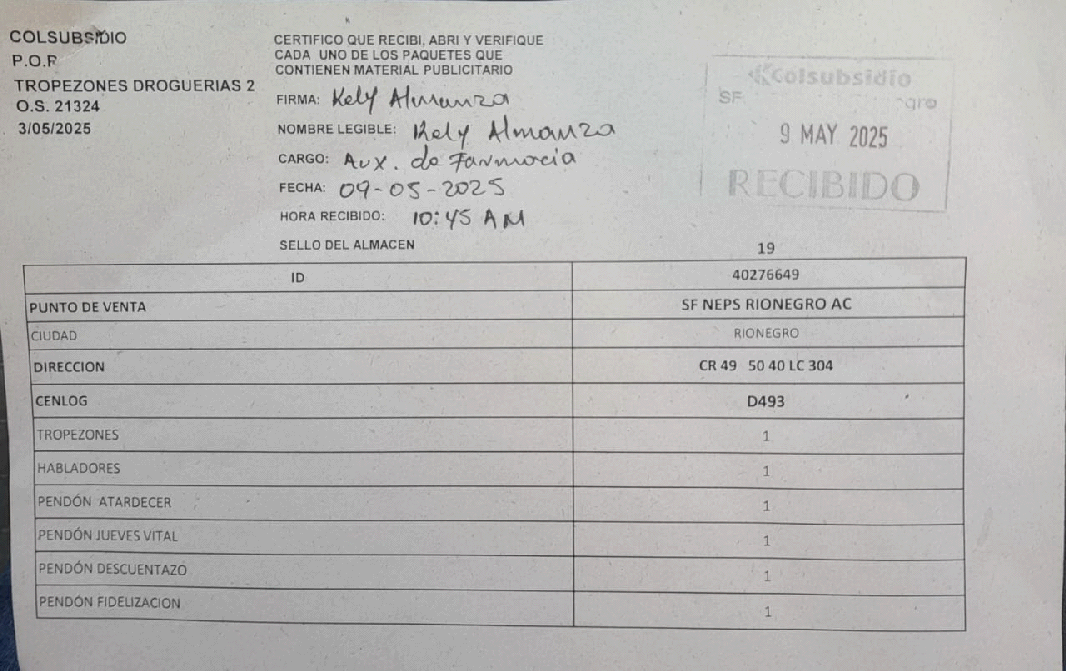 COLSUBSIDIO
P.O.P
TROPEZONES DROGUERIAS 2
O.S. 21324
3/05/2025
CERTIFICO QUE RECIBI, ABRI Y VERIFIQUE
CADA UNO DE LOS PAQUETES QUE
CONTIENEN MATERIAL PUBLICITARIO
FIRMA: Kely Almanza
NOMBRE LEGIBLE: Kely Almanza
CARGO: Aux. de Farmacia
FECHA: 09-05-2025
HORA RECIBIDO: 10:45 AM
SELLO DEL ALMACEN
Colsubsidio
SF
9 MAY 2025
RECIBIDO
19
ID 40276649
PUNTO DE VENTA SF NEPS RIONEGRO AC
CIUDAD RIONEGRO
DIRECCION CR 49 50 40 LC 304
CENLOG D493
TROPEZONES 1
HABLADORES 1
PENDÓN ATARDECER 1
PENDÓN JUEVES VITAL 1
PENDÓN DESCUENTAZÓ 1
PENDÓN FIDELIZACION 1